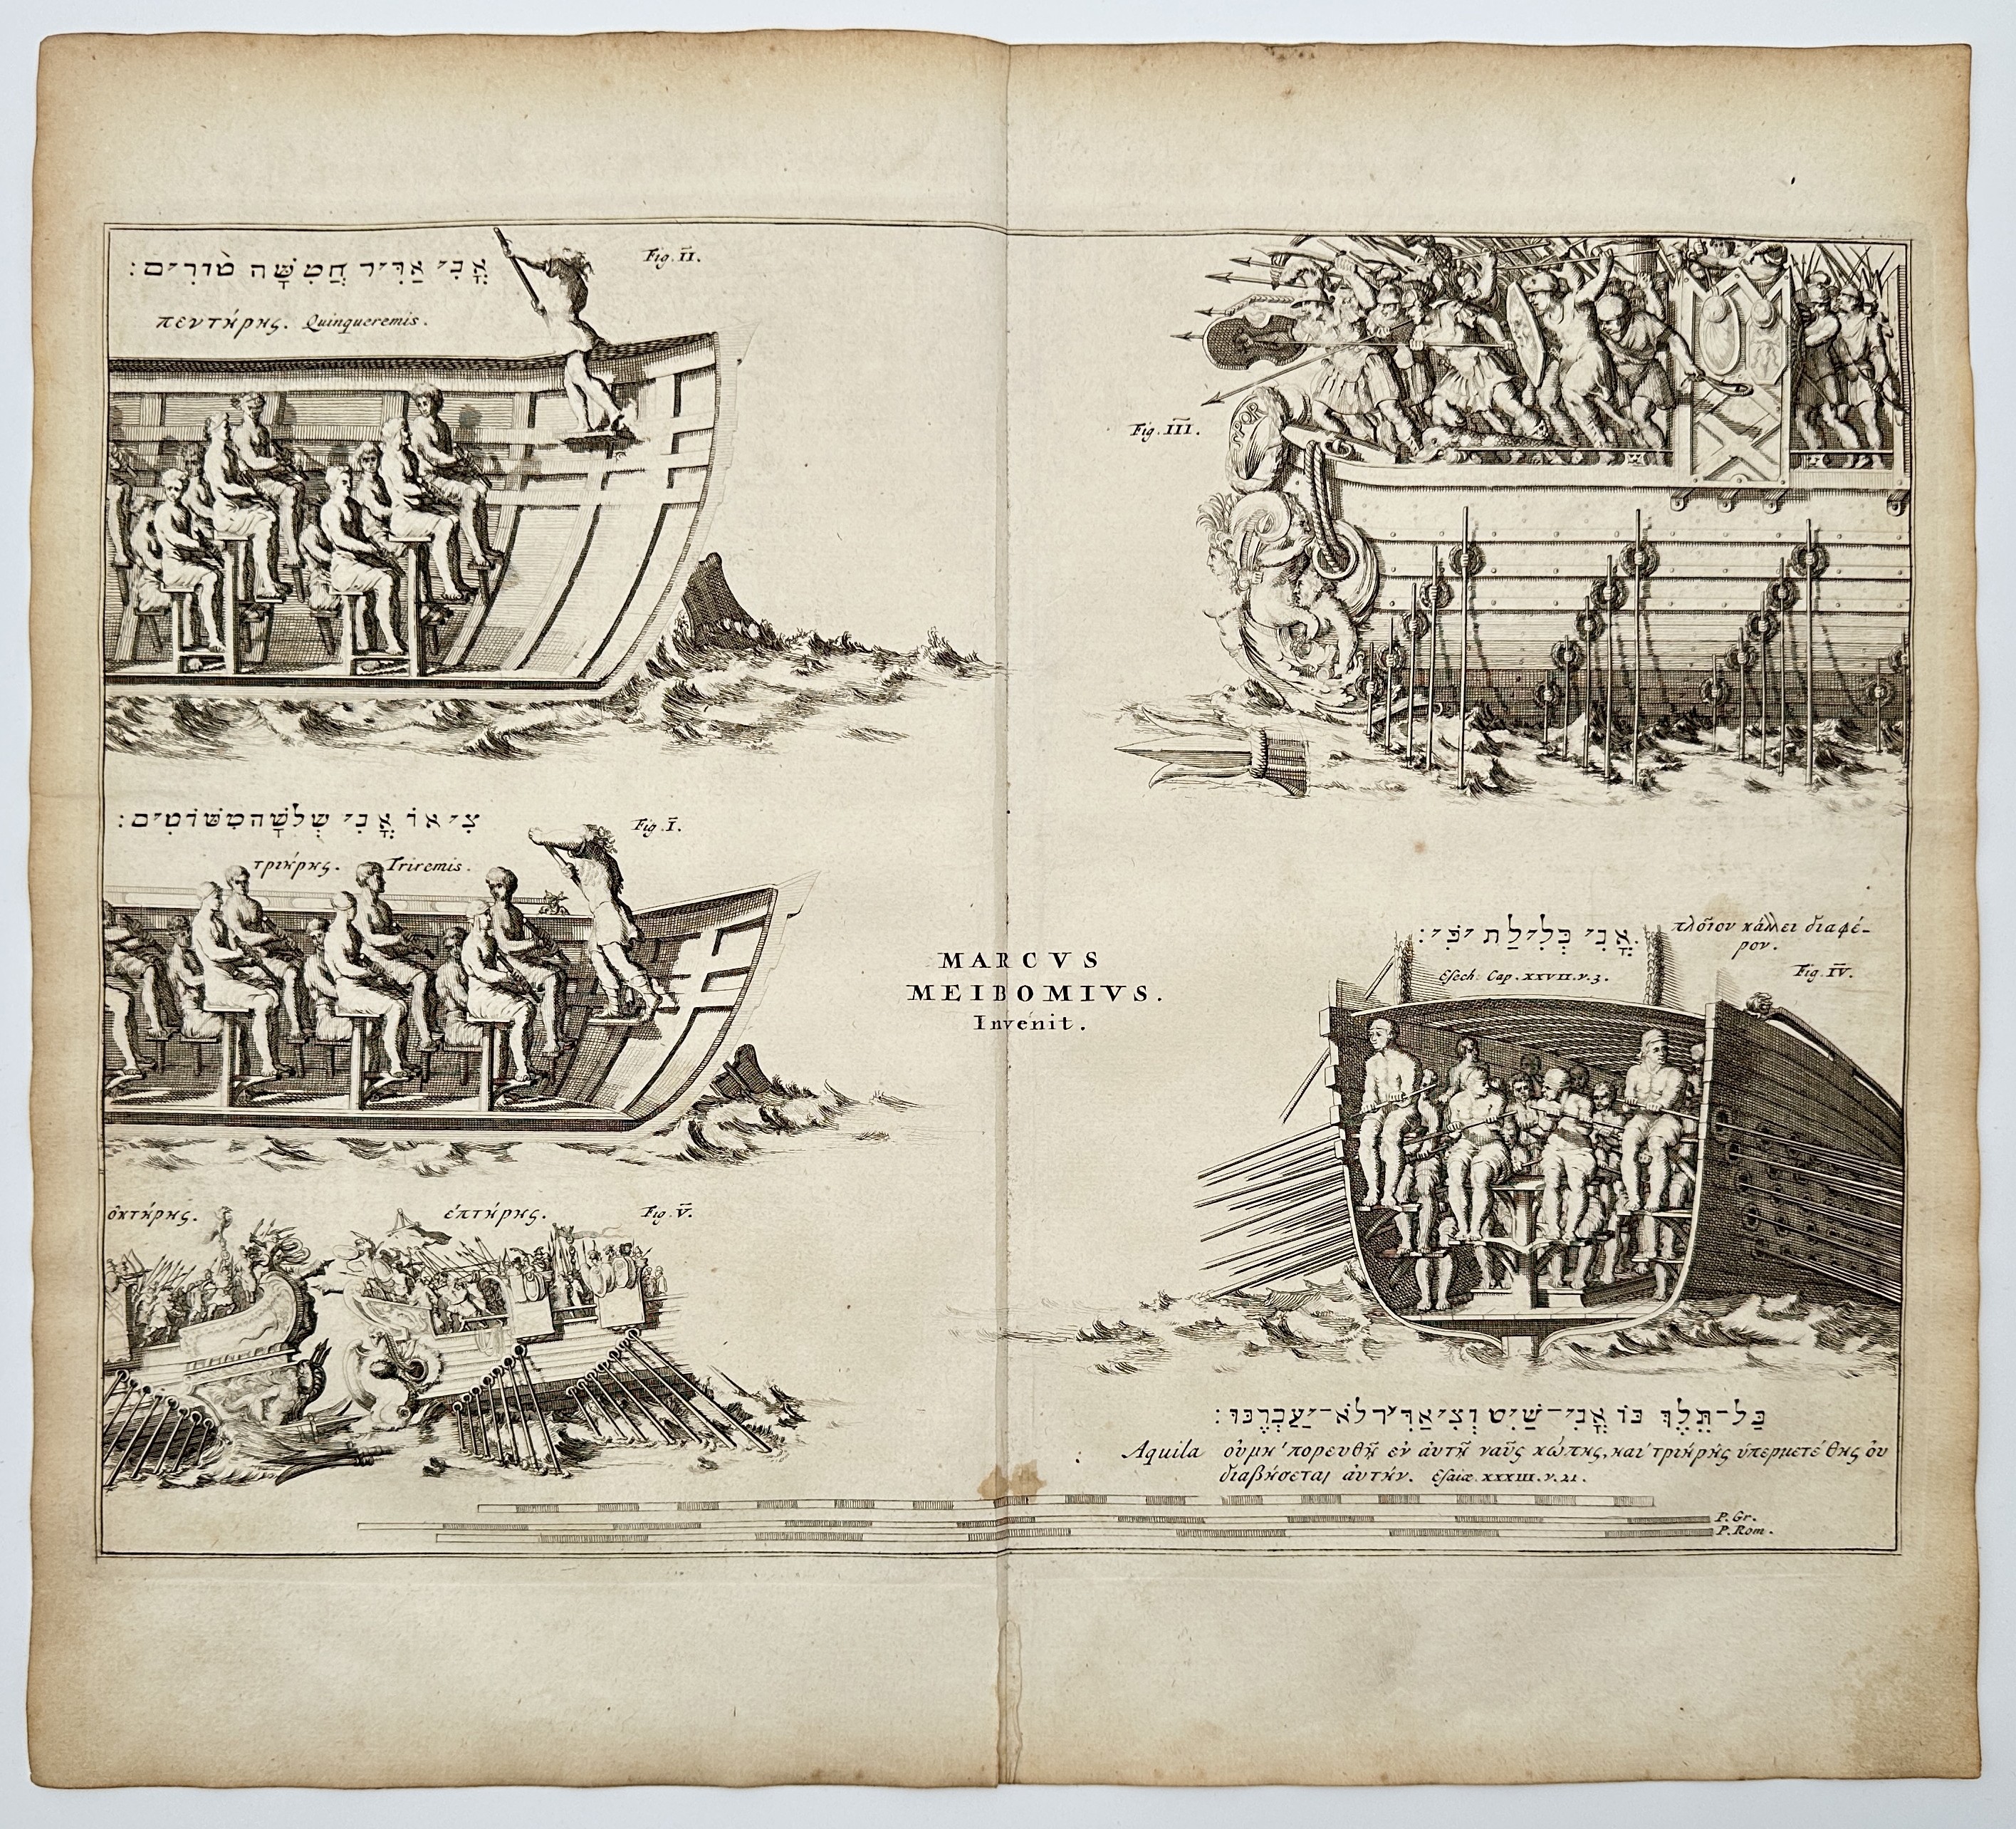 אֳנִי אַדִּיר חֲמִשָּׁה טוּרִים׃
Fig. II.
πεντήρης. Quinqueremis.
Fig. III.
צִי אוֹ אֳנִי שְׁלשָׁה מִשּׁוֹטִים׃
Fig. I.
τριήρης. Triremis.
MARCVS
MEIBOMIVS.
Invenit.
אֳנִי כְּלִילַת יֹפִי׃
πλοῖον κάλλει διαφέ-
ρον.
Esech. Cap. XXVII. v. 3.
Fig. IV.
ὀκτήρης.
ἑπτήρης.
Fig. V.
בַּל־תֵּלֶךְ בּוֹ אֳנִי־שַׁיִט וְצִי אַדִּיר לֹא־יַעַבְרֶנּוּ׃
Aquila οὐ μὴ πορευθῇ ἐν αὐτῇ ναῦς κώπης, καὶ τριήρης ὑπερμετέθης οὐ
διαβήσεται αὐτήν. Esaiæ. XXXIII. v. 21.
P. Gr.
P. Rom.